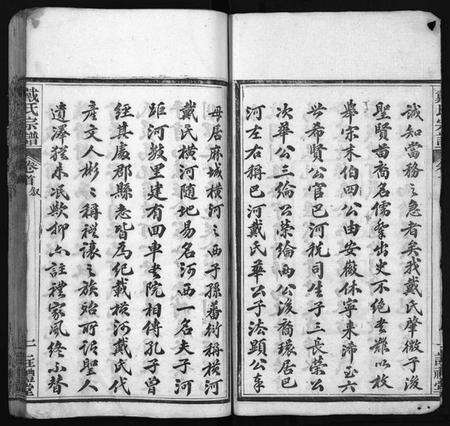 誠知當務之急者矣我戴氏肇微子後
聖賢苗裔名儒文史不絕書難以枚
舉宋末伯四公由安徽休寧來沛五六
世希賢公官巴河稅司生子三長榮公
次華公三綸公榮綸兩公後裔環居巴
河左右稱巴河戴氏華公子法顯公奉
母居麻城橫河之西子孫番衍稱橫河
戴氏橫河隨地易名河西一名夫子河
距河數里建有四車書院相傳孔子曾
經其處郡縣志皆為紀載橫河戴氏代
產文人彬之稱禮讓之族殆所謂聖人
遺澤猶未泯歟抑亦註禮家風終不替
戴氏宗譜
卷首
敘
二
註禮堂